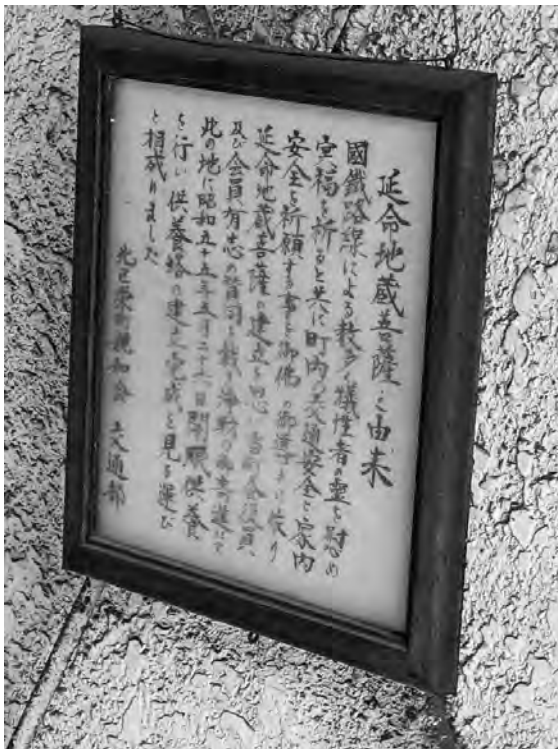 延命地蔵菩薩の由来
國鐵路線による数多の犠牲者の霊を慰め
冥福を祈ると共に町内の交通安全と家内
安全を祈願する事を御佛の御導きに依り
延命地蔵菩薩の建立を思い 当町会役員
及び会員有志の賛同を戴き浄財の御寄進にて
此の地に昭和五十五年五月二十六日開眼供養
を行い 供養塔の建立完成を見る運び
と相成りました
栄町親和会 交通部